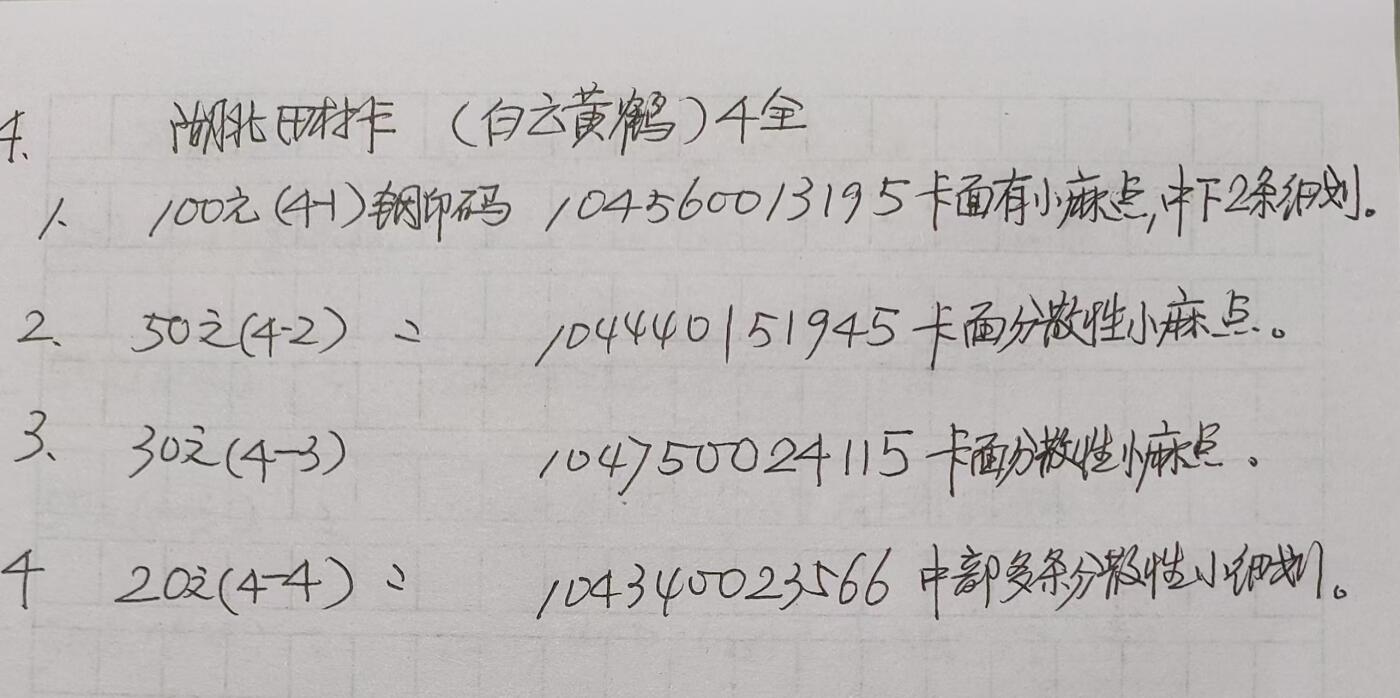 4. 湖北田村卡 （白云黄鹤）4全
1. 100元(4-1)钢印码 104560013195卡面有小麻点,中下2条细划。
2、 50元(4-2) 〃 104440151945卡面分散性小麻点。
3、 30元(4-3) 104750024115卡面分散性小麻点。
4 20元(4-4) 〃 104340023566中部多条分散性小细划。